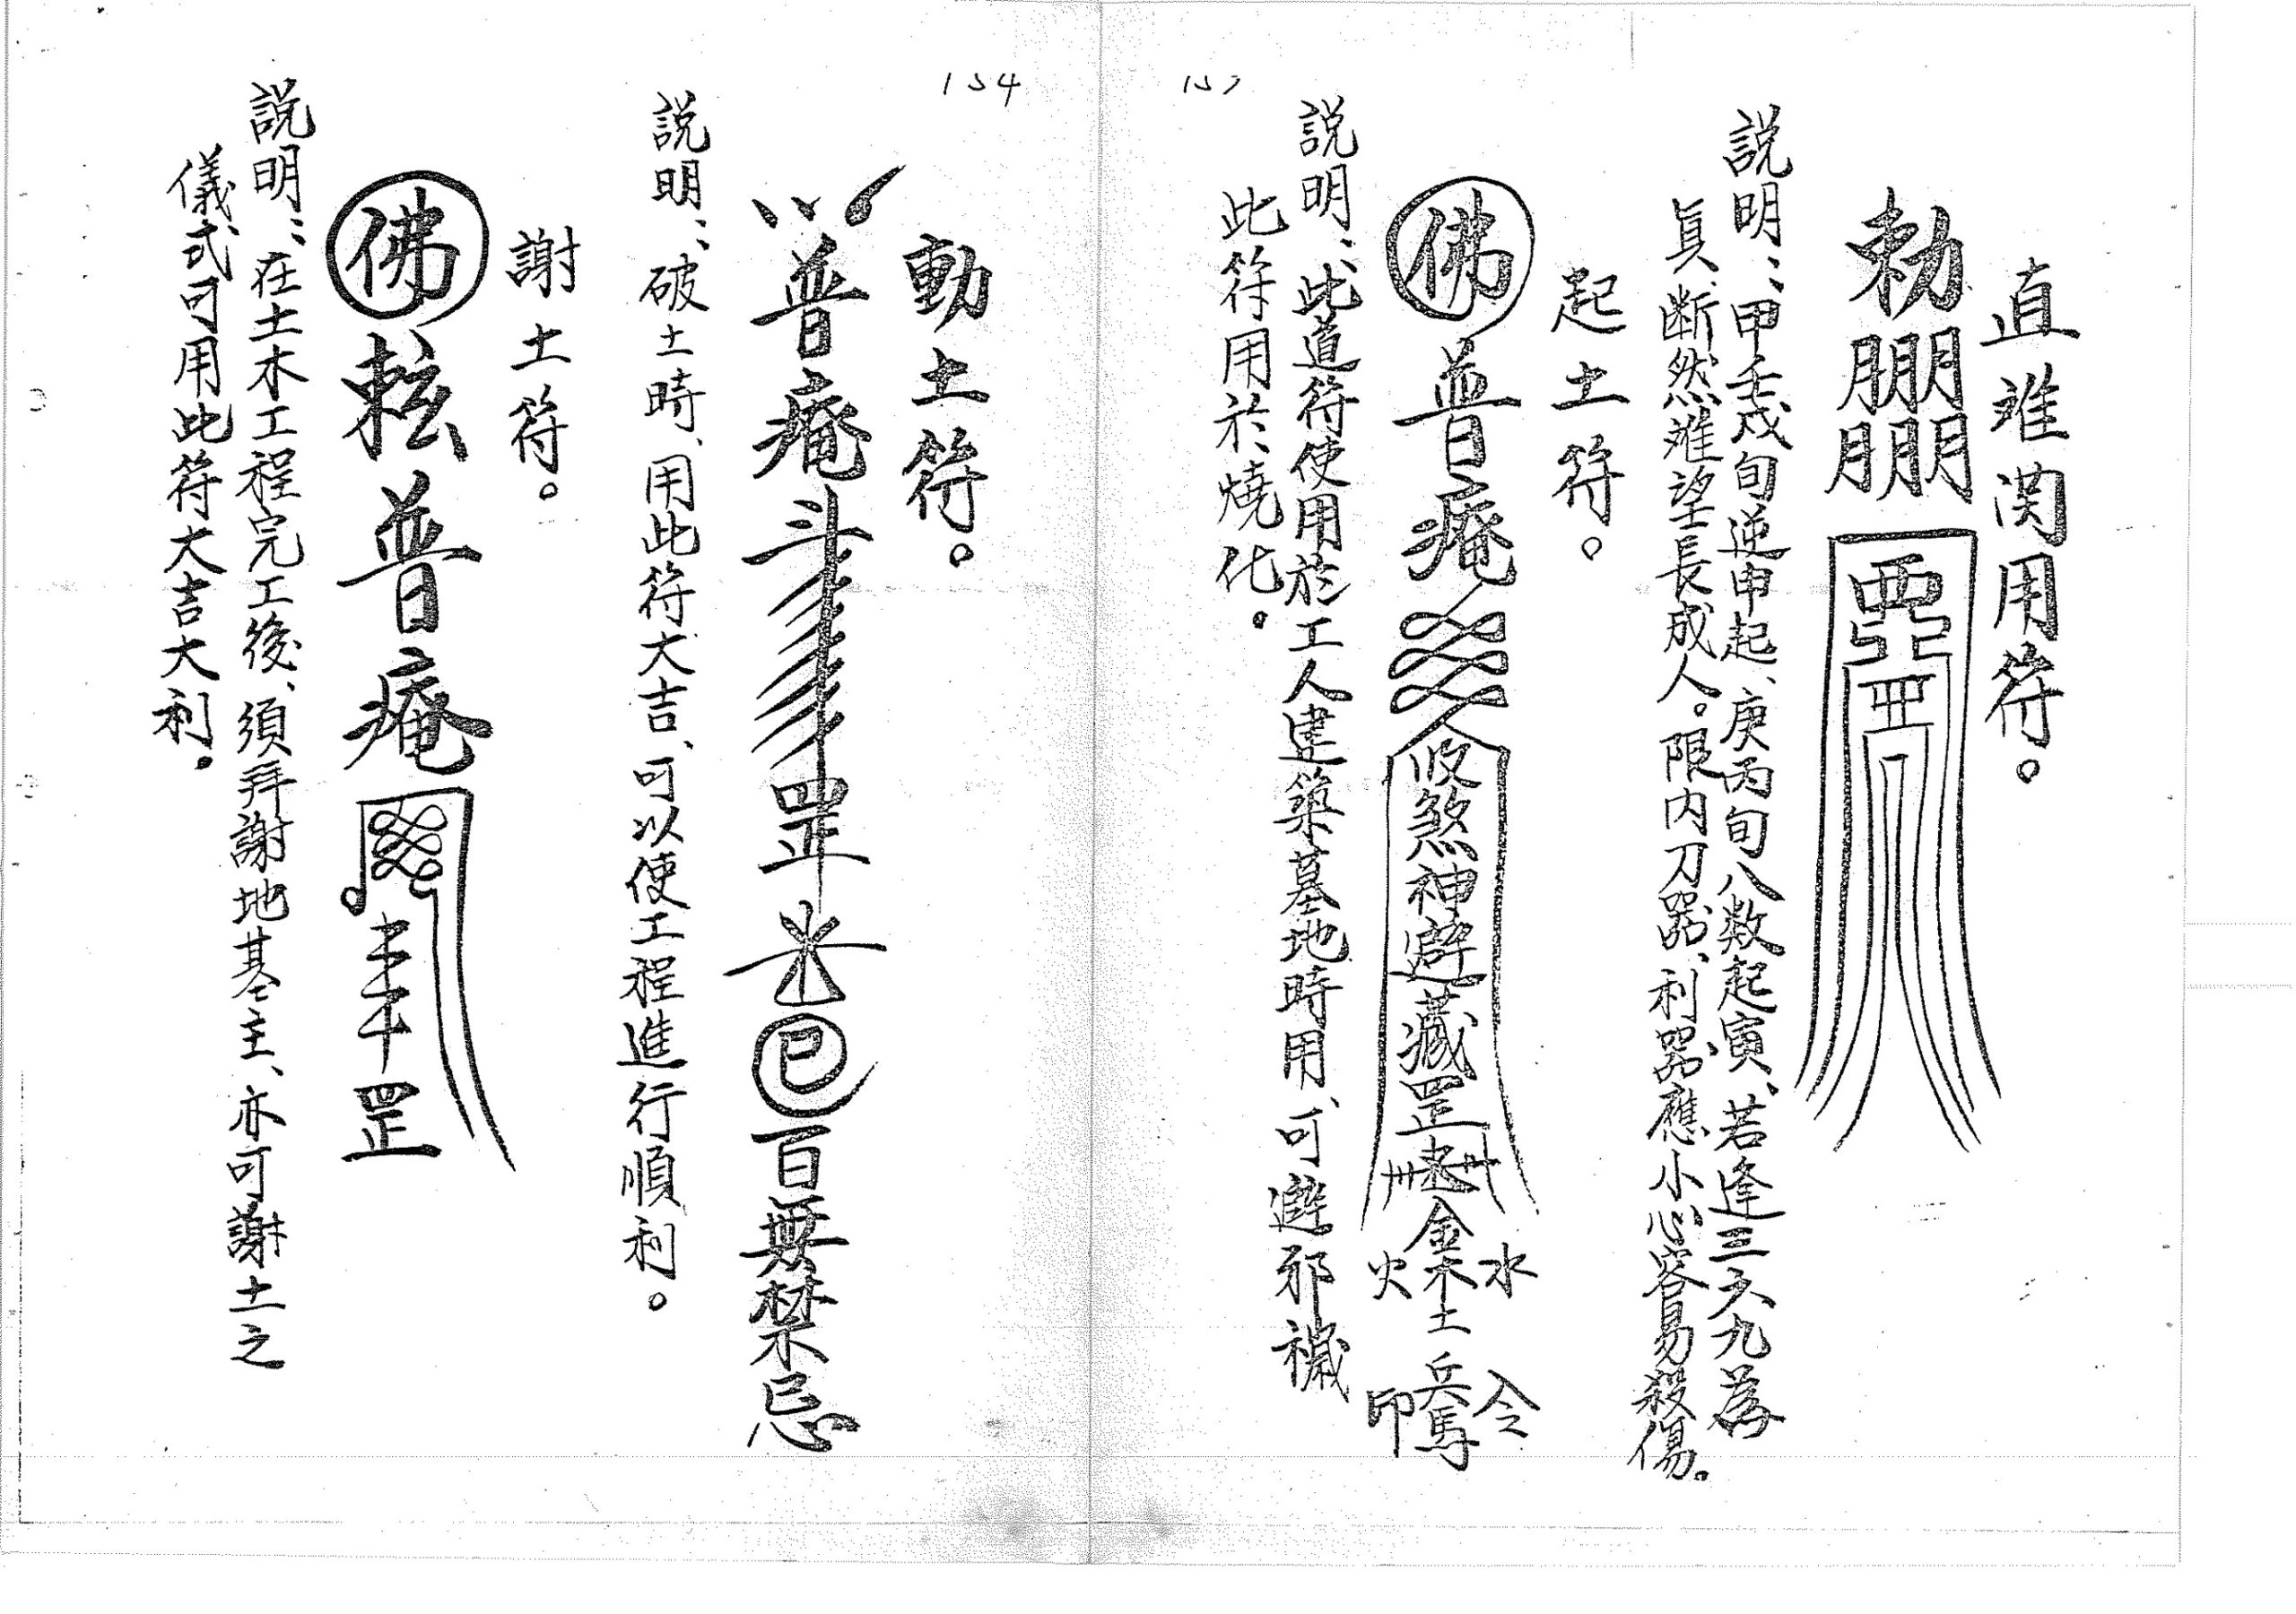 直难関用符。
勅
朋朋
朋朋
説明：甲壬戊旬逆申起、庚丙旬八数起寅、若逢三六九為
眞、断然难望長成人。限内刀器、利器應小心容易殺傷。
起土符。
佛
普庵
收煞神避藏罡
金木水火土
兵馬印令
説明、此道符使用於工人建築墓地時用、可避邪穢
此符用於燒化。
154
動土符。
普庵
斗罡
百無禁忌
説明：破土時、用此符大吉、可以使工程進行順利。
謝土符。
佛
普庵
罡
説明：在土木工程完工後、須拜謝地基主、亦可謝土之
儀式可用此符大吉大利。